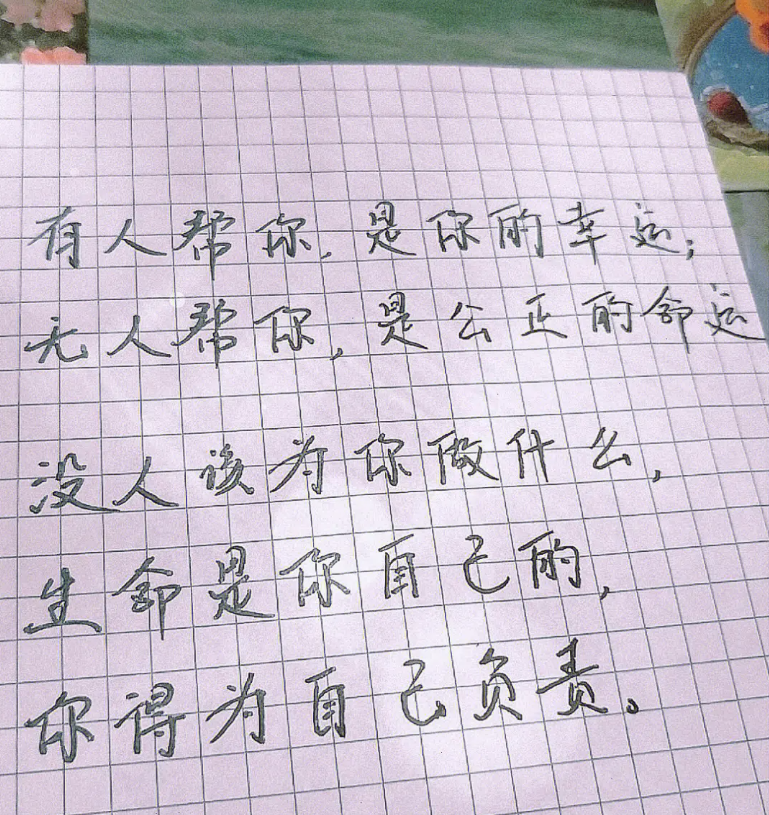 有人帮你,是你的幸运;
无人帮你,是公正的命运
没人该为你做什么,
生命是你自己的,
你得为自己负责。